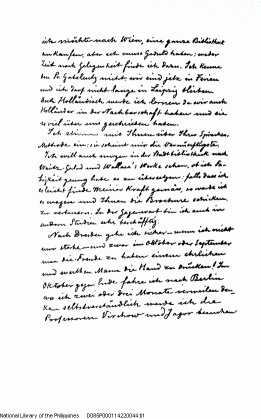 ich möchte nach Wien, eine ganze Bibliothek
ankaufen; aber ich muss Geduld haben; weder
Zeit noch Gelegenheit finde ich dazu. Ich kenne
Dr. Gabelentz nicht; wir sind jetzt in Ferien
und ich darf nicht lange in Leipzig bleiben
Auch Holländisch werde ich lernen da wir auch
Holländer in der Nachbarschaft haben und sie
so viel über uns geschrieben haben.
Ich stimme mit Ihnen über Ihre Sprachen
Methode ein; sie scheint mir die Vernünftigste.
Ich will auch morgen in der Stadtbibliothek nach
Waitz Gerland und Wallace's Werke sehen, ob ich
genug habe es zu übersetzen; falls dass ich
es leicht finde meiner Kraft gemäss, so werde ich
es wagen und Ihnen die Brochure schicken,
zu verbessern. In der Gegenwart bin ich auch in
andern Studien sehr beschäftigt.
Nach Dresden gehe ich sicher, wenn ich nicht
sterbe und zwar im Oktober oder September
um die Freude zu haben einem ehrlichen
und edlen Manne die Hand zu drücken! Im
Oktober gegen Ende fahre ich nach Berlin
wo ich zwei oder drei Monate verweilen
selbstverständlich werde ich die
Professoren Virchow und Jagor besuchen
National Library of the Philippines D086P00011422004401